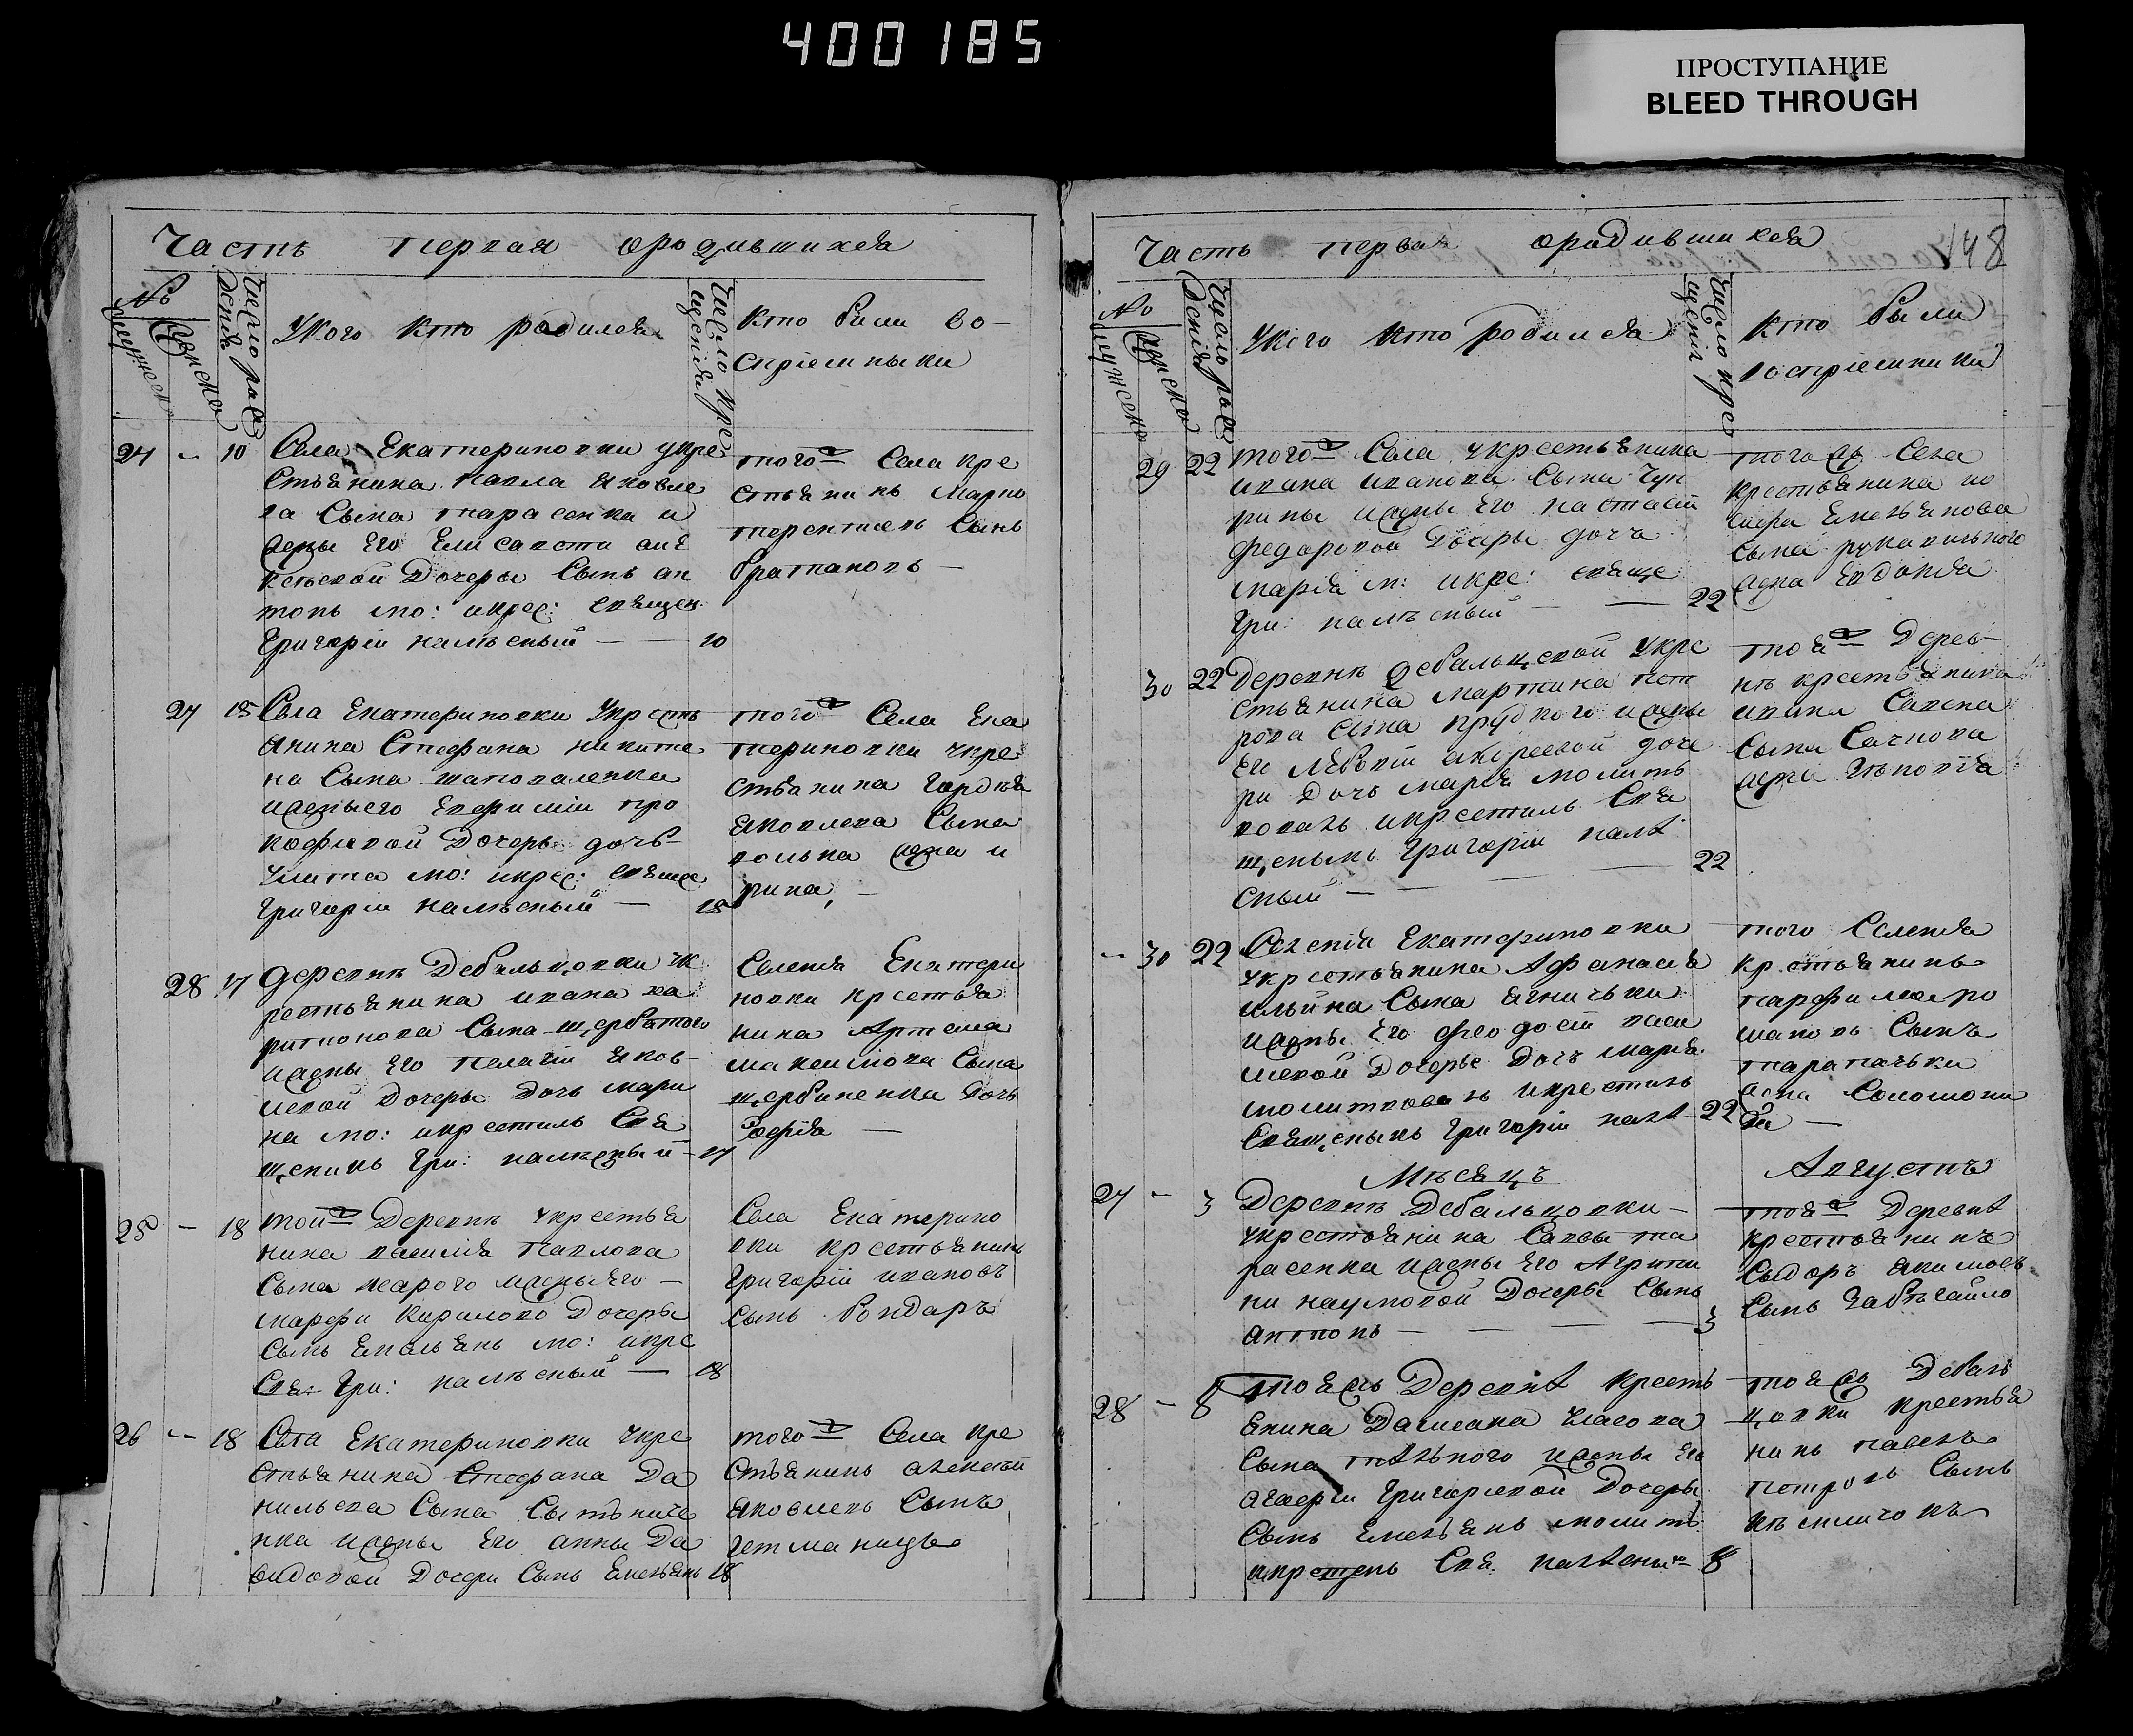 400185
ПРОСТУПАНИЕ
BLEED THROUGH
Часть первая ородившихся
№
мужеск
женско
Число рож
денія
У кого кто родился
Число кре
щенія
Кто били во-
спріемныки
24 - 10
Села Екатериновки укре
стьянина Павла Яковле
ва Сына тарасенка и
жены Его Елисавети
Дочеры Сынъ ан
тонъ мо: икрес: священ
Григорій налѣсный - 10
того ж Села кре
стьянинъ Марко
терентиевъ Сынъ
братановъ -
27 15
Села Екатериновки укресть
янина Стефана никити
на Сына шаповаленка
ижены его Евфиміи про
кофиевой Дочеры дочь
Улита мо: икрес: священ
Григорій налѣсный - 18
того ж Села Ека
териновки укре
стьянина Гордѣя
Яковлева Сына
волька жена и
рина, -
28 17
деревнѣ Дебальцовки ук
рестьянина ивана ха
ритонова Сына щербатого
ижены Его Пелагіи Яков
левой Дочеры Дочь мари
на мо: икрестилъ Свя
щеникъ Гри: налѣсный - 17
Селенія Екатери
новки крестья
нина Артема
максимова Сына
щербиненка дочь
Софія -
25 - 18
той ж Деревнѣ укрестья
нина василія Павлова
Сына карого ижены Его -
марфи Кирилово Дочеры
Сынъ Емельянъ мо: икре
Свя: Гри: налѣсный - 18
Села Екатерино
вки крестьянинъ
Григорій ивановъ
сынъ бондаръ
26 - 18
Села Екатериновки укре
стьянина Стефана Да
нильева Сына Сытниче
нка ижены Его анны Да
видовой Дочери Сынъ Емельянъ 18
того ж Села кре
стьянинъ алексѣй
яковлевъ Сынъ
гетманецъ
Часть первая ородившихся
148
№
мужеско
женско
Число рож
денія
У кого кто родился
Число кре
щенія
Кто были
воспріемники
29 22
того ж Села укрестьянина
ивана иванова Сына Чуп
рины ижены Его настасіи
федоровой Дочеры дочь
марія м: икре: свяще
Гри: налѣсный - 22
того жъ Села
крестьянина ио
сифа Емельянова
Сына рукавильного
жена Евдокія
30 22
Деревнѣ дебальцевой укре
стьянина мартина пет
рова сына прудкого ижены
Его доче
ри Дочь марія молитъ
вовалъ икрестилъ Свя
щеникъ Григорій налѣ
сный - 22
тоя ж Дерев-
нѣ крестьянина
ивана Савена
Сына Сачкова
жена
- 30 22
Селенія Екатериновки
укрестьянина Афанасія
ильина Сына ягничьки
ижены Его феодосіи васи
левой Дочерье Дочь марія
молитвовалъ икрестилъ
Священикъ Григорій налѣ - 22
того Селенія
крестьянинъ
парфил
Сынъ
таратачьки
жена Соломони
я -
Мѣсяцъ Августъ
27 - 3
Деревнѣ Дебальцовки -
укрестьянина Саввы та
расенка ижены Его Агрипи
ни наумовой Дочеры Сынъ
антонъ - 3
тоя ж Деревнѣ
крестьянинъ
Сыдоръ якимовъ
Сынъ Забѣгайло
28 - 8
тоя жъ Деревнѣ кресть
янина Власова
Сына ижены Его
Григориевой Дочеры
Сынъ Емельянъ молитв
икрещенъ Свя: налѣсны 8
тоя жъ Дебаль
цовки крестья
нинъ павелъ
петровъ Сынъ